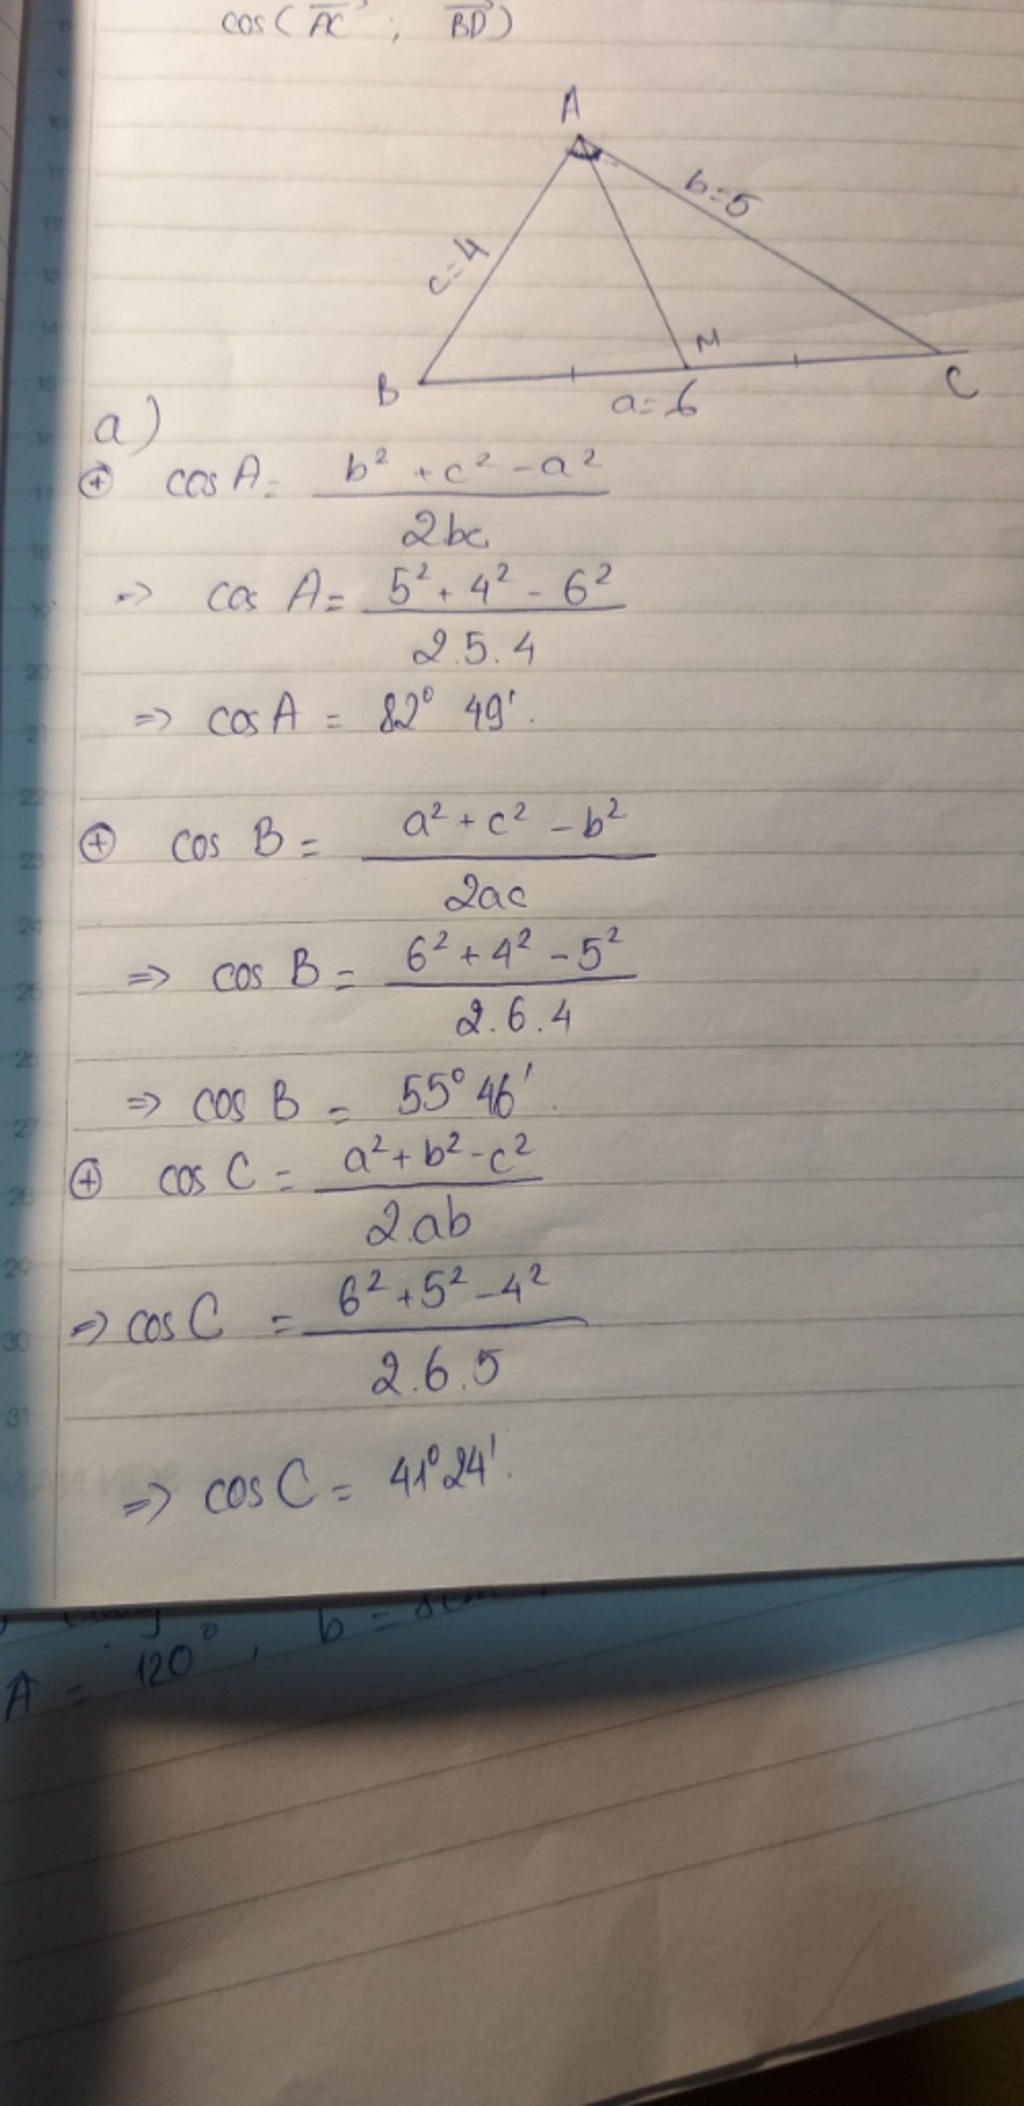 cos( AC ; BD )
A
b=5
c=4
M
B
C
a=6
a)
⊕ cos A = b² + c² - a² / 2bc
=> cos A = 5² + 4² - 6² / 2.5.4
=> cos A = 82° 49'.
⊕ cos B = a² + c² - b² / 2ac
=> cos B = 6² + 4² - 5² / 2.6.4
=> cos B = 55° 46'.
⊕ cos C = a² + b² - c² / 2.ab
=> cos C = 6² + 5² - 4² / 2.6.5
=> cos C = 41° 24'.
A = 120°, b = 8cm